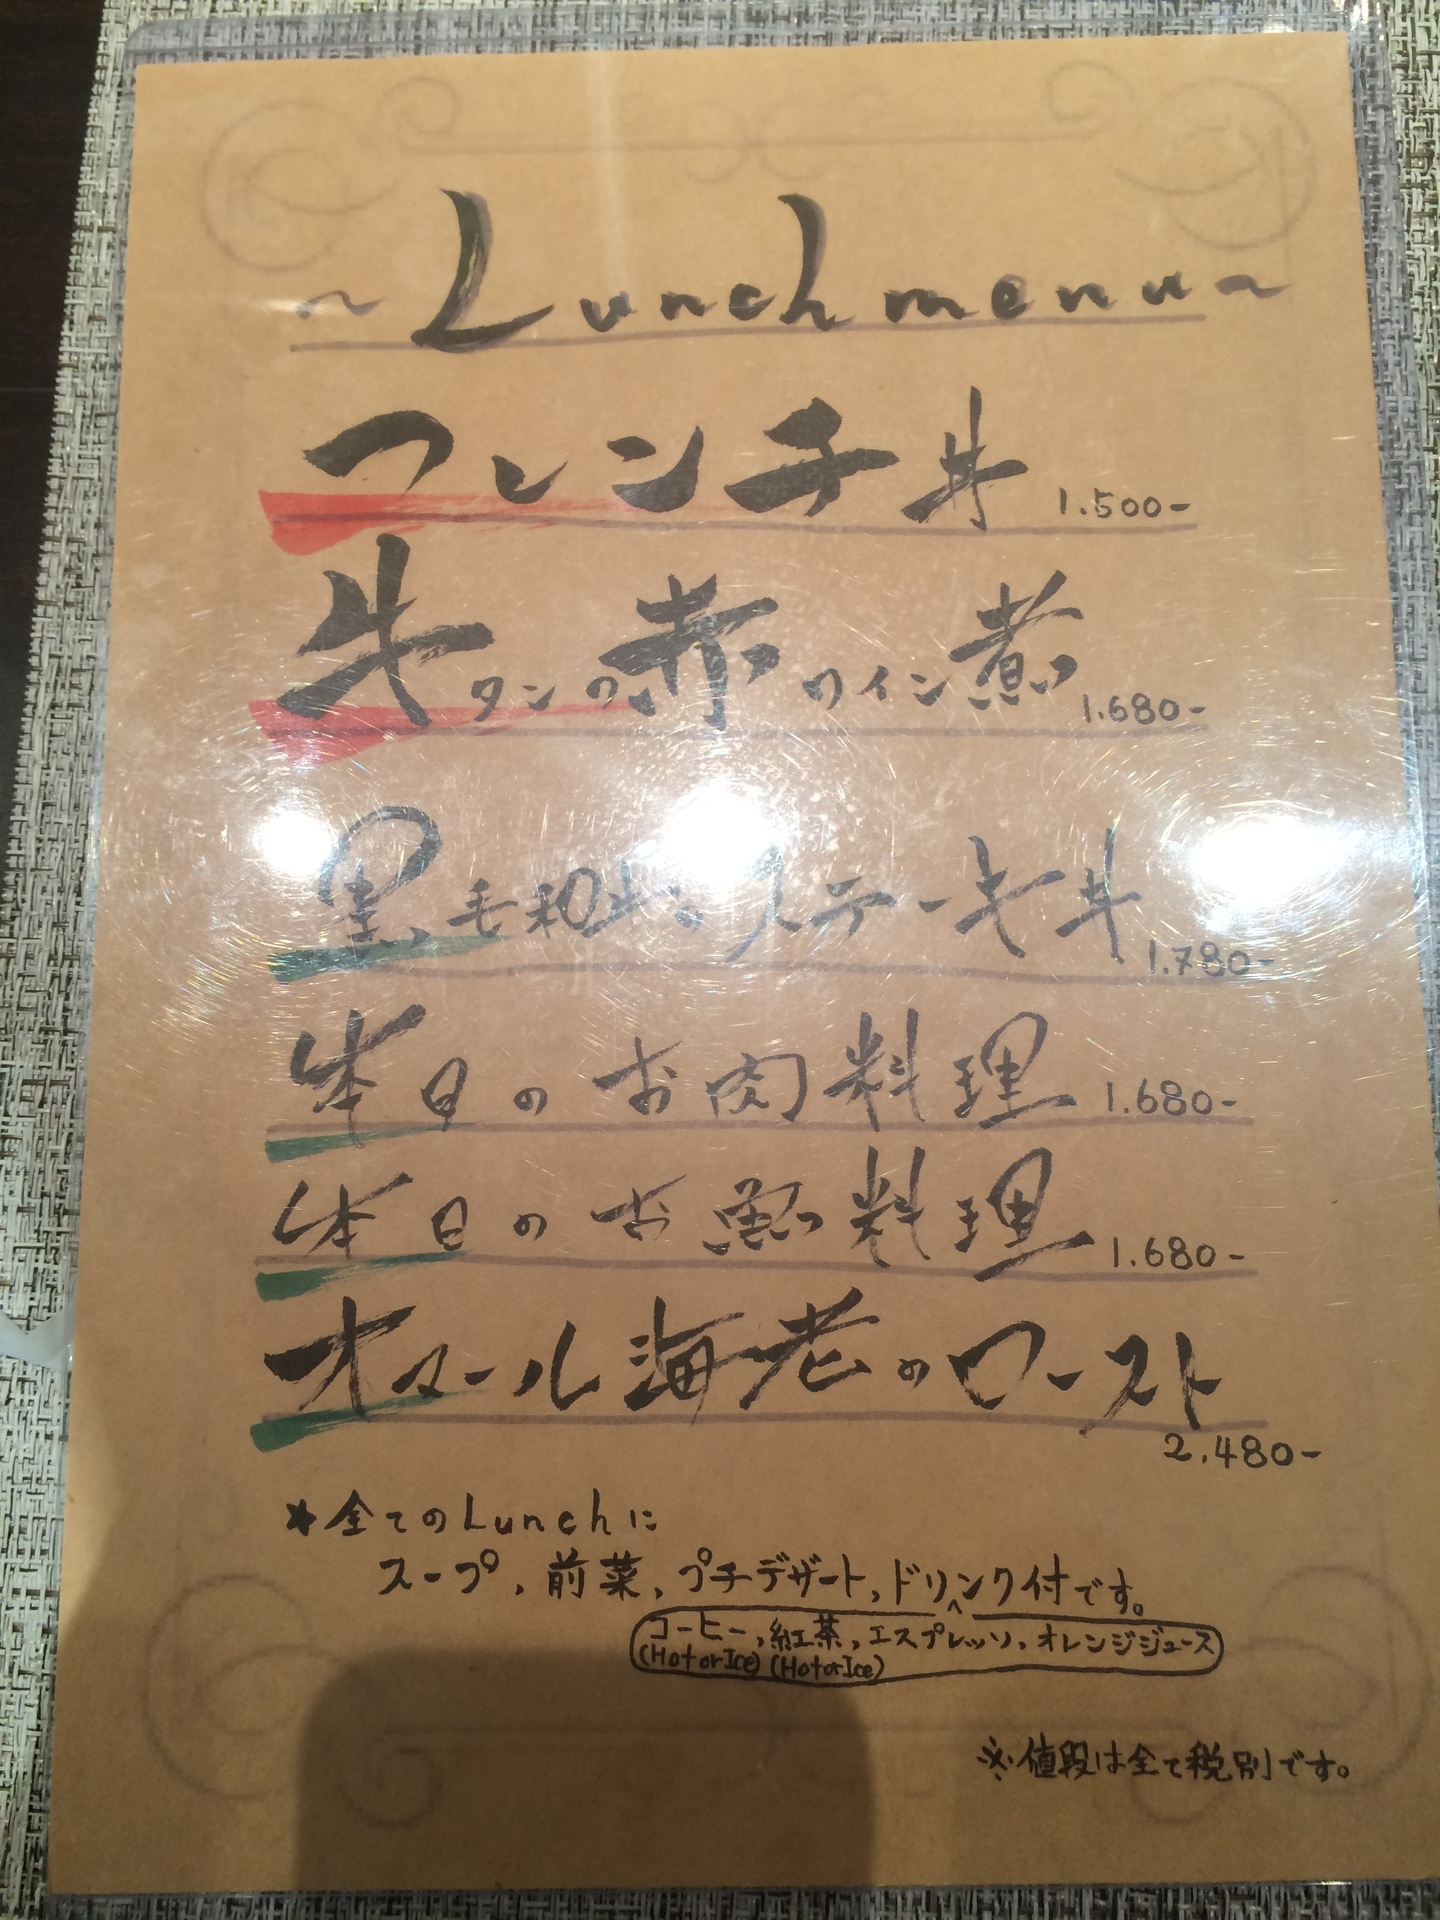 ~Lunch menu~
フレンチ丼 1.500-
牛タンの赤ワイン煮 1.680-
黒毛和牛のステーキ丼 1.780-
本日のお肉料理 1.680-
本日のお魚料理 1.680-
オマール海老のロースト
2.480-
★全てのLunchに
スープ、前菜、プチデザート、ドリンク付です。
コーヒー、紅茶、エスプレッソ、オレンジジュース
(Hot or Ice) (Hot or Ice)
※値段は全て税別です。